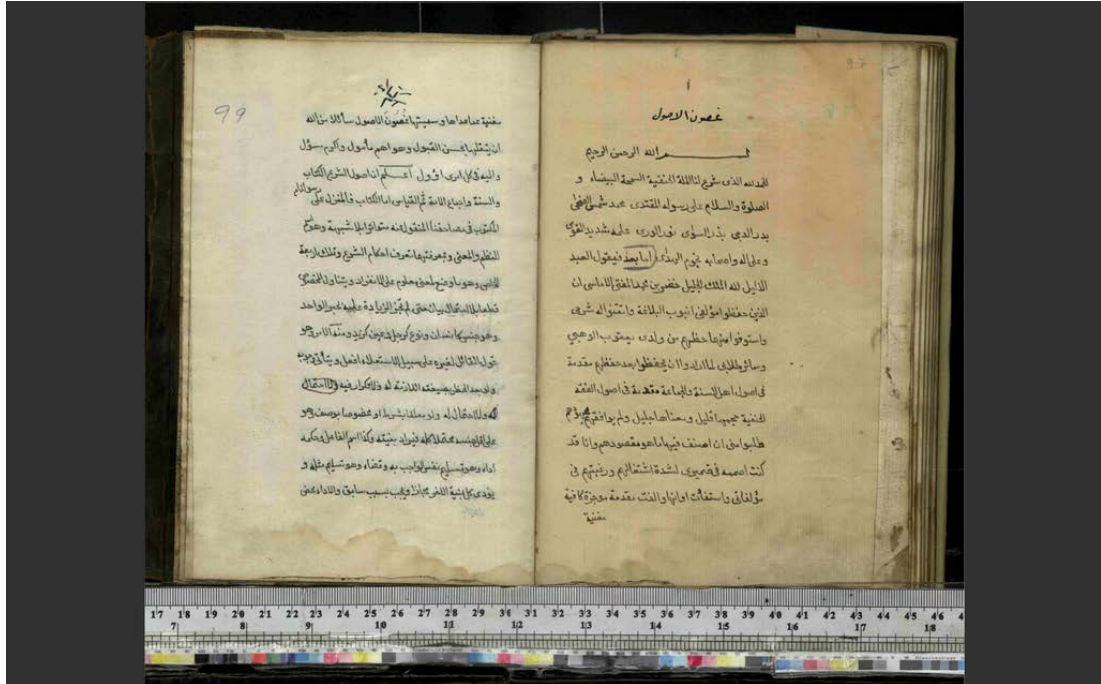 غصون الاصول
بسم الله الرحمن الرحيم
الحمد لله الذى شرع لنا الملة الحنفية السمحة البيضاء و
الصلوة والسلام على رسوله المقتدى محمد شمس الضحى
بدر الدجى نور الورى علمه شديد القوى
وعلى اله واصحابه نجوم الهدى اما بعد فيقول العبد
الذليل لله الملك الجليل خضر بن محمد المفتى الاماسى ان
الذين حفظوا مؤلفى انبوب البلاغة واتقنوا له شرحى
واستوفوا منهما حظهم من ولدى يعقوب الوهبى
وسائر طلابى لما ارادوا ان يحفظوا بعد حفظهم مقدمة
فى اصول اهل السنة والجماعة مقدمة فى اصول الفقه
الحنفية حجمها قليل ومعناها جليل ولم يوافقهم
طلبوا منى ان اصنف فيها ما هو مقصودهم وانا قد
كنت اصممه فى ضميرى لشدة اشتغالهم ورغبتهم فى
مؤلفاتى والفت مقدمة موجزة كافية
مغنية
99
مغنية عما عداها وسميتها غصون الاصول سائلا من الله
ان يتقبلها بحسن القبول وهو اهم مأمول واكرم مسؤل
واليه فى كل امرى اؤول اعلم ان اصول الشرع الكتاب
والسنة واجماع الامة ثم القياس اما الكتاب فالمنزل على رسولنا
المكتوب فى مصاحفنا المنقول عنه متواترا بلا شبهة وهو اسم
للنظم والمعنى وبمعرفتهما تعرف احكام الشرع وتلك اربعة
الخاص وهو ما وضع لمعنى معلوم على الانفراد ويتناول المخصوص
قطعا بلا احتمال بيان حتى لم تجز الزيادة عليه بخبر الواحد
وهو جنس كانسان ونوع كرجل وعين كزيد ومنه الامر وهو
قول القائل لغيره على سبيل الاستعلاء افعل
بصيغته اللازمة له ولا تكرار فيه
ولا احتمال له ولو معلقا بشرط او مخصوصا بوصف وهو
على اقل جنسه محتملا كله فيراد بنيته وكذا اسم الفاعل وحكمه
اداء وهو تسليم نفس الواجب به وقضاء وهو تسليم مثله و
يؤدى كل بنية الاخر مجازا ويجب بسبب سابق والاداء محض